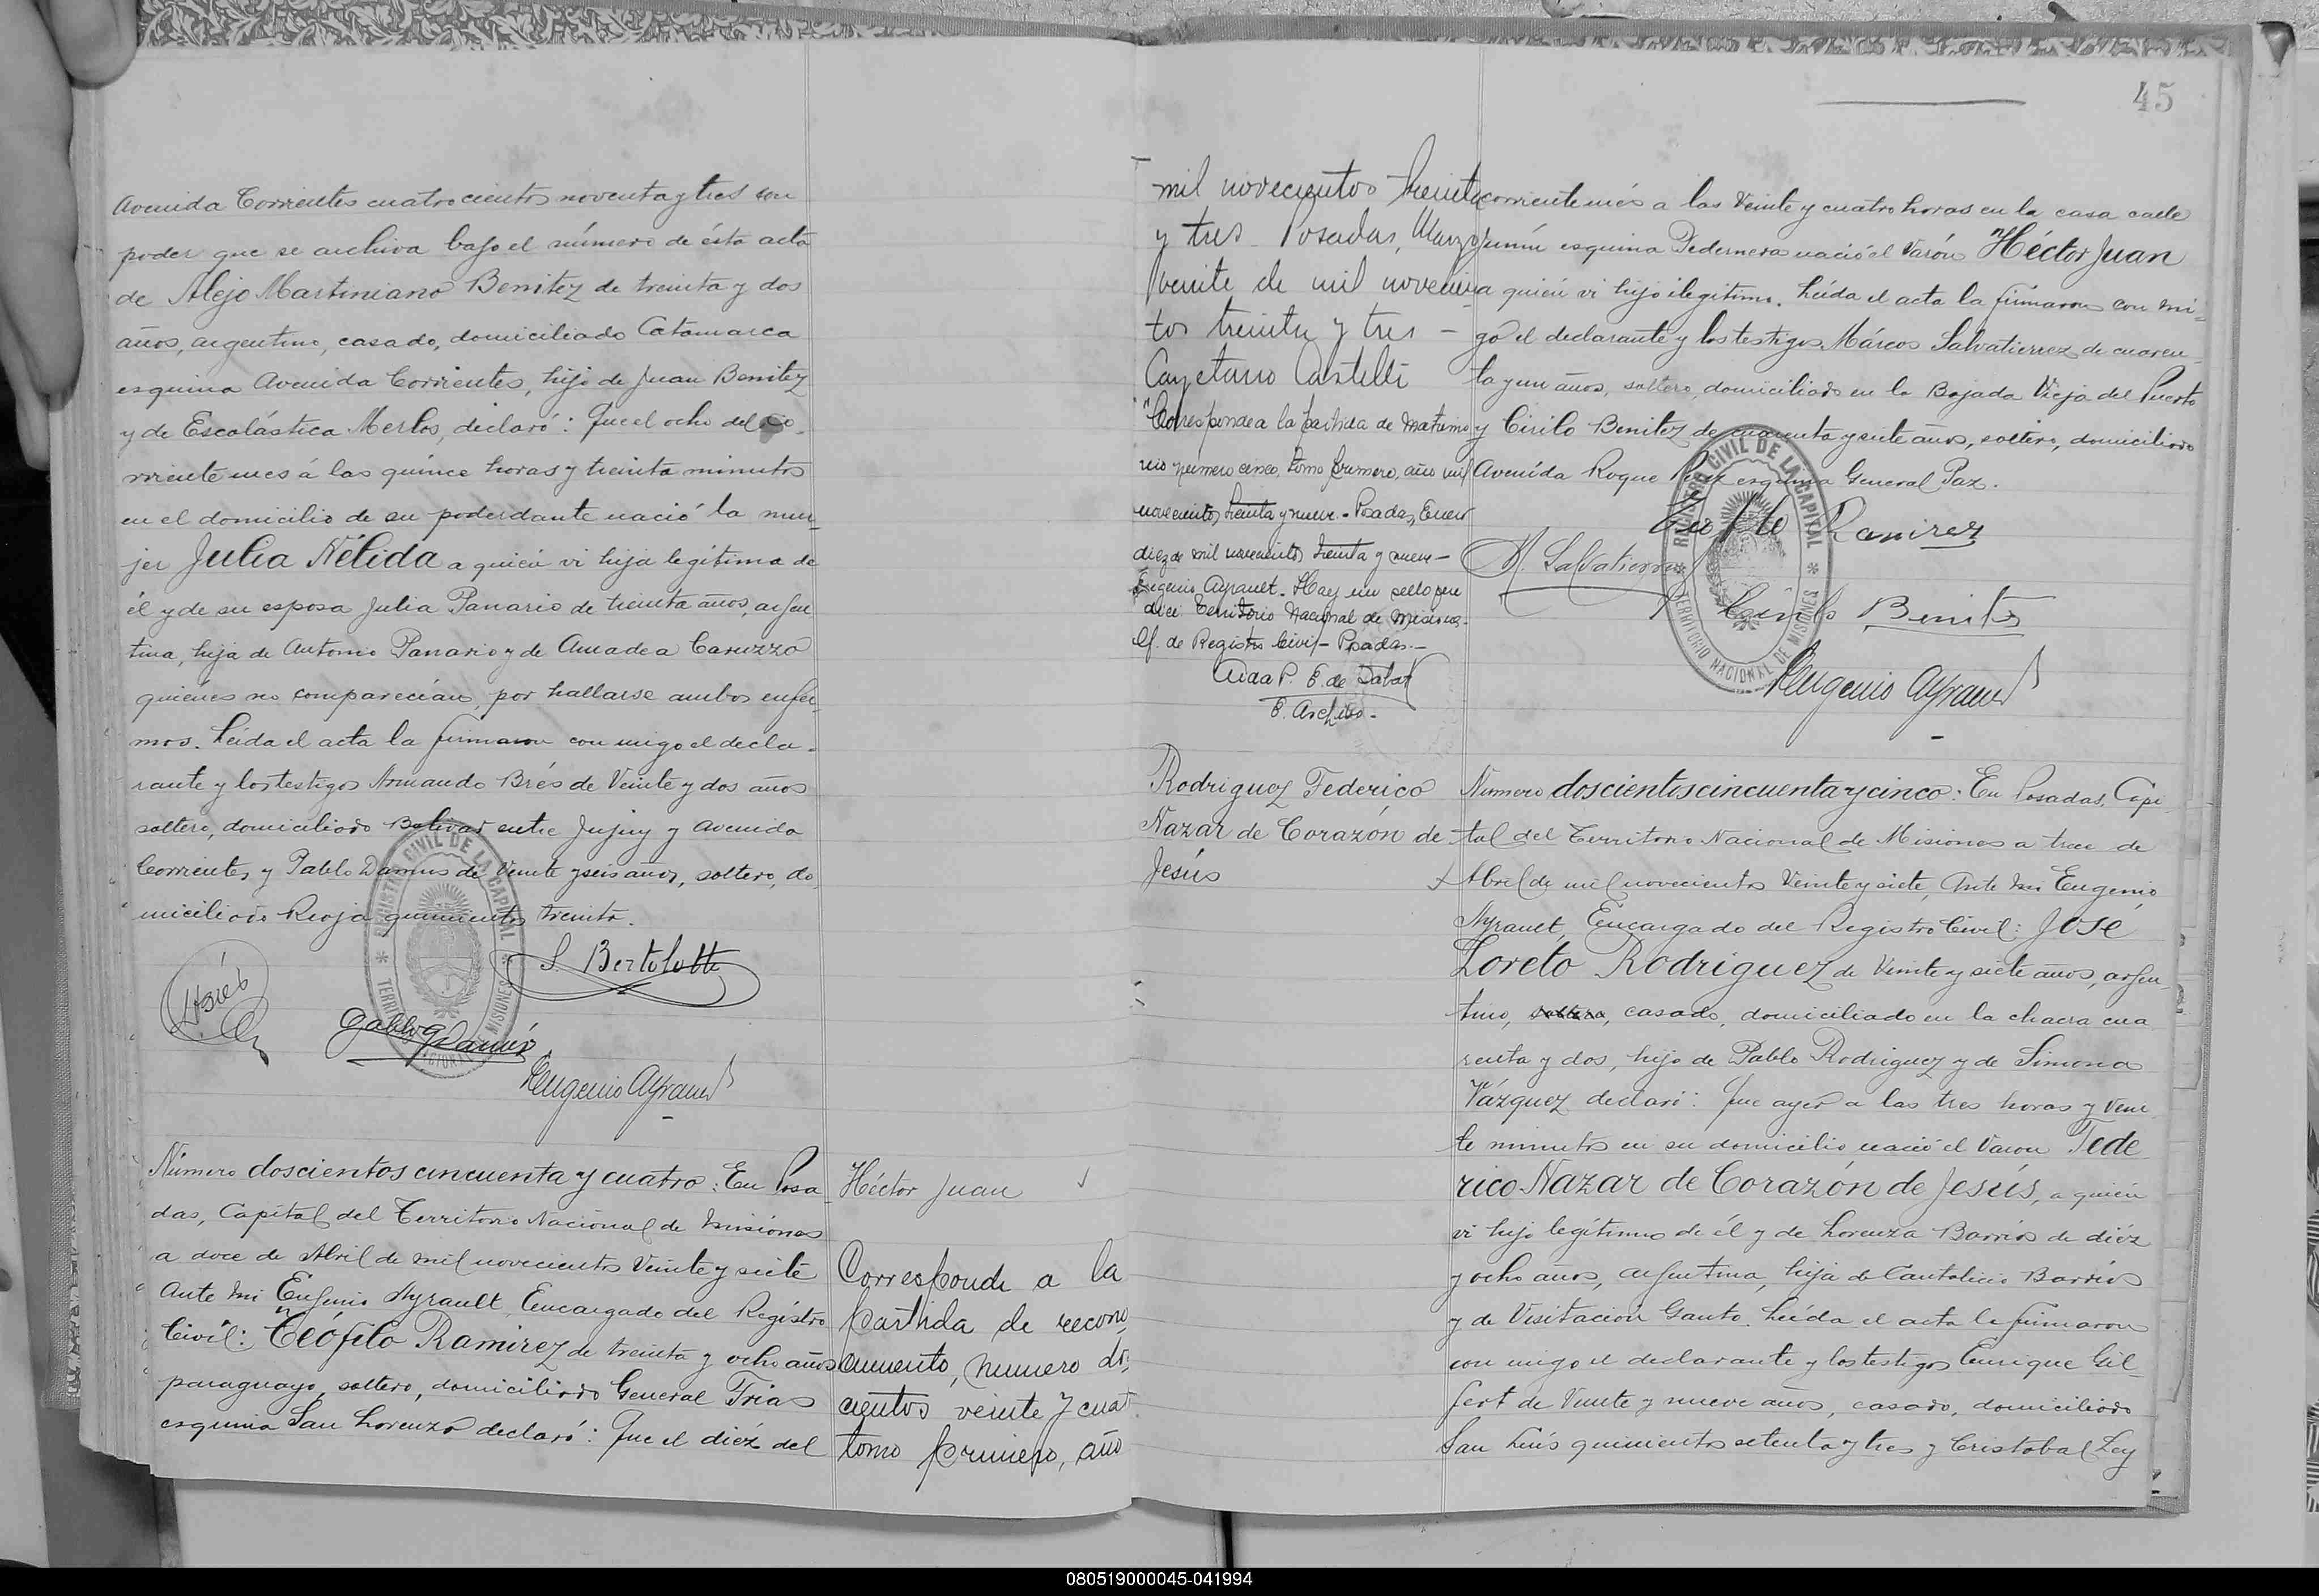 Avenida Corrientes cuatrocientos noventa y tres con
poder que se archiva bajo el número de ésta acta
de Alejo Martiniano Benitez de treinta y dos
años, argentino, casado, domiciliado Catamarca
esquina Avenida Corrientes, hijo de Juan Benitez
y de Escolástica Merlos, declaró: Que el ocho del co-
rriente mes á las quince horas y treinta minutos
en el domicilio de su poderdante nació la mu-
jer Julia Nélida a quién vi hija legítima de
él y de su esposa Julia Panario de treinta años, argen-
tina, hija de Antonio Panario y de Amadea Caruzzo
quiénes no comparecían por hallarse ambos enfer-
mos. Leída el acta la firmaron con migo el decla-
rante y los testigos Armando Brés de Veinte y dos años
soltero, domiciliado Bolívar entre Jujuy y Avenida
Corrientes y Pablo Damus de Veinte y seis años, soltero, do
miciliado Rioja quinientos treinta.
S. Bertolotti
ABrés
Pablo Damús
Eugenio Ayrault
REGISTRO CIVIL DE LA CAPITAL
TERRITORIO NACIONAL DE MISIONES
Número doscientos cincuenta y cuatro: En Posa-
das, Capital del Territorio Nacional de Misiones
a doce de Abril de mil novecientos Veinte y siete
Ante mi Eugenio Ayrault, Encargado del Registro
Civil: Teófilo Ramirez de treinta y ocho años
paraguayo, soltero, domiciliado General Frias
esquina San Lorenzo declaró: Que el diéz del
Héctor Juan
Corresponde a la
partida de recono
cimiento, numero do
cientos veinte y cuat
tomo primero, año
45
mil novecientos treinta
y tres Posadas, Marzo
veinte de mil novecien
tos treinta y tres -
Cayetano Castelli
"Corresponde a la partida de matrimo
nio número cinco, tomo primero, año mil
novecientos treinta y nueve.- Posadas, Enero
diez de mil novecientos treinta y nueve-
Eugenio Ayrault. Hay un sello que
dice: Territorio Nacional de Misiones.
Of. de Registro Civil- Posadas.-
E. Archivo.-
corriente més a las Veinte y cuatro horas en la casa calle
Junín esquina Pedernera nació el Varón "Héctor Juan
a quién vi hijo ilegítimo. Leída el acta la firmaron con mi-
go el declarante y los testigos Márcos Salvatierrez de cuaren-
ta y un años, soltero, domiciliado en la Bajada Vieja del Puerto
y Cirilo Benitez de cuarenta y siete años, soltero, domiciliado
Avenida Roque Perez esquina General Paz.
Teofilo Ramirez
M. Salvatierrez
Cirilo Benitez
Eugenio Ayrault
REGISTRO CIVIL DE LA CAPITAL
TERRITORIO NACIONAL DE MISIONES
Rodriguez Federico
Nazar de Corazón de
Jesús
Número doscientos cincuenta y cinco: En Posadas, Capi-
tal del Territorio Nacional de Misiones a trece de
Abril de mil novecientos Veinte y siete, Ante mi Eugenio
Ayrault, Encargado del Registro Civil: José
Loreto Rodriguez de Veinte y siete años, argen-
tino, soltero, casado, domiciliado en la chacra cua
renta y dos, hijo de Pablo Rodriguez y de Simona
Vázquez declaró: Que ayer a las tres horas y Vein
te minutos en su domicilio nació el Varon Fede
rico Nazar de Corazón de Jesús, a quién
vi hijo legítimo de él y de Lorenza Barrios de diéz
y ocho años, argentina, hija de Cantalicio Barrios
y de Visitación Gauto. Leída el acta la firmaron
con migo el declarante y los testigos Enrique Gil-
fert de Veinte y nueve años, casado, domiciliado
San Luis quinientos setenta y tres y Cristobal Ley
080519000045-041994